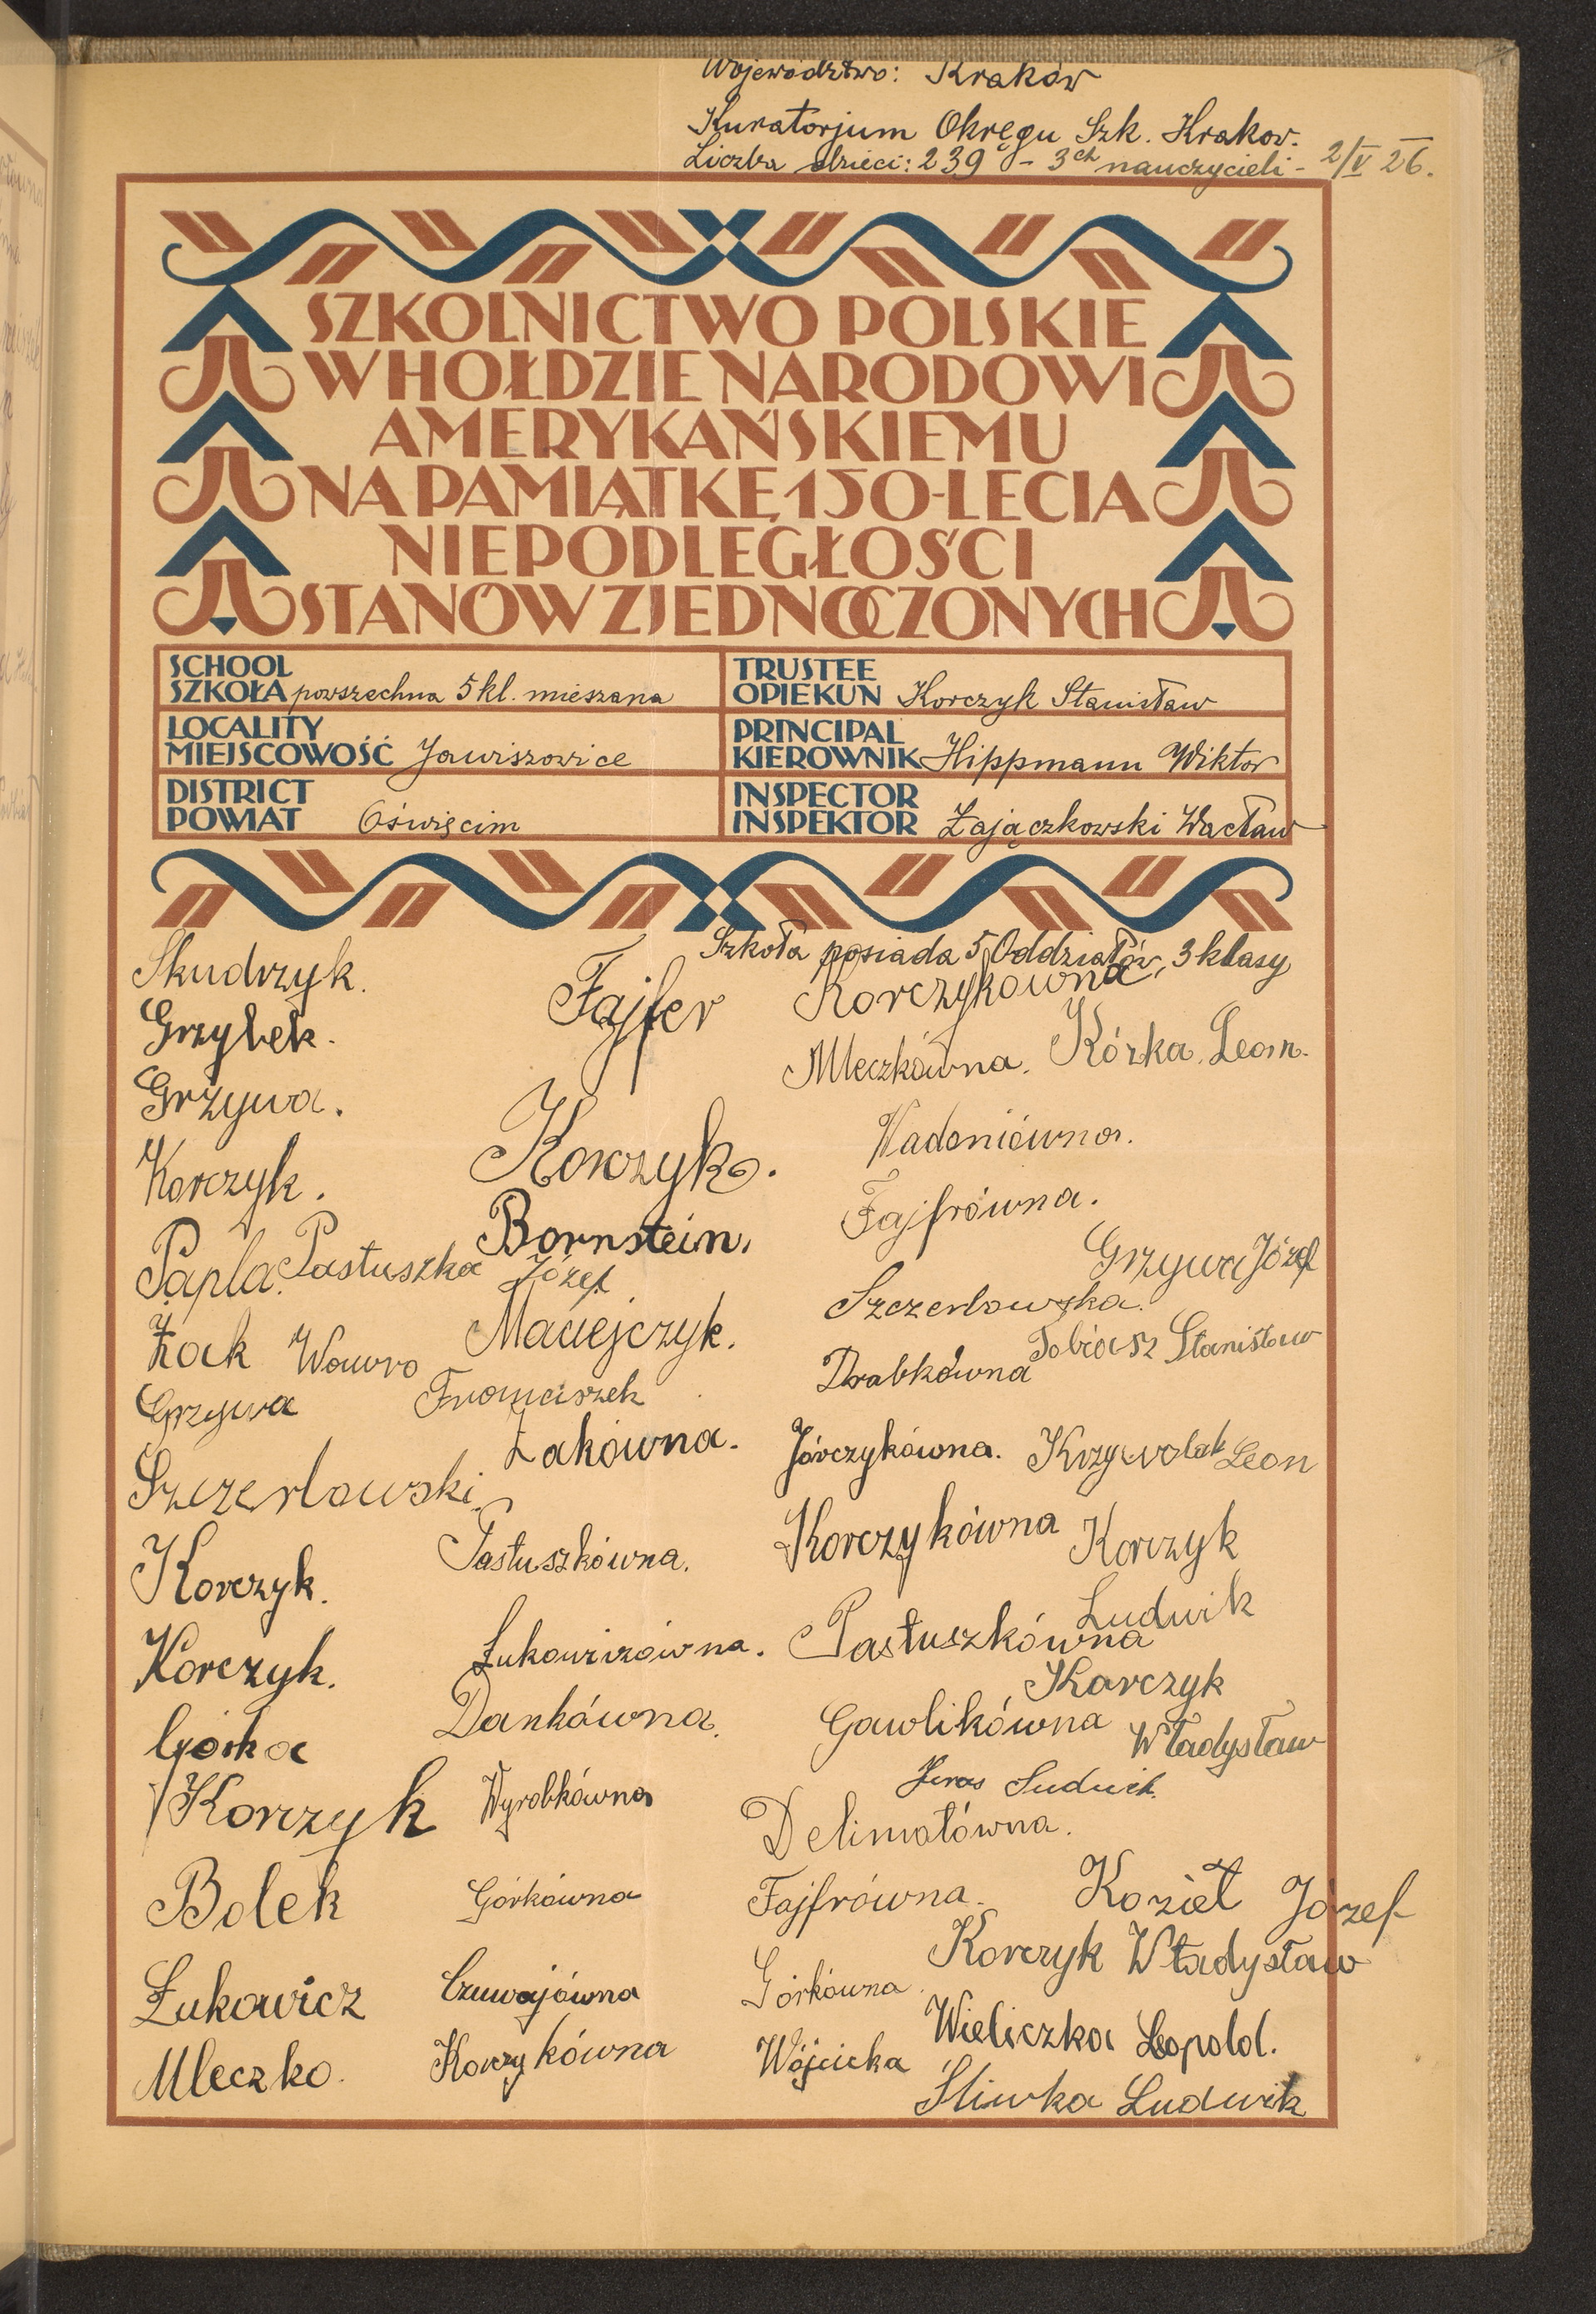 Województwo: Kraków
Kuratorjum Okręgu Szk. Krakow.
Liczba dzieci: 239 - 3ch nauczycieli - 2/V 26.
SZKOLNICTWO POLSKIE
W HOŁDZIE NARODOWI
AMERYKAŃSKIEMU
NA PAMIĄTKĘ 150-LECIA
NIEPODLEGŁOŚCI
STANÓW ZJEDNOCZONYCH
SCHOOL
SZKOŁA powszechna 5 kl. mieszana
TRUSTEE
OPIEKUN Korczyk Stanisław
LOCALITY
MIEJSCOWOŚĆ Jawiszowice
PRINCIPAL
KIEROWNIK Hippmann Wiktor
DISTRICT
POWIAT Oświęcim
INSPECTOR
INSPEKTOR Zajączkowski Wacław
Szkoła posiada 5 Oddziałów, 3 klasy
Skudrzyk.
Grzybek.
Grzywa.
Korczyk.
Papla. Pastuszka Józef
Żak Wawro Franciszek
Grzywa
Szczerbowski
Korczyk.
Korczyk.
Górka
Korczyk
Bolek
Łukowicz
Mleczko.
Fajfer
Korczyk.
Bornstein.
Maciejczyk.
Żakówna.
Pastuszkówna.
Dankówna.
Wyrobkówna
Górkówna
Czuwajówna
Korczykówna
Korczykówna
Mleczkówna. Kózka Leon.
Wadoniówna.
Fajfrówna.
Grzywa Józef
Szczerbowska.
Tobiasz Stanisław
Drabkówna
Jórczykówna. Krzywolak Leon
Korczykówna Korczyk
Ludwik
Pastuszkówna
Karczyk
Gawlikówna Władysław
Ludwik
Delimatówna.
Fajfrówna. Kozieł Józef
Korczyk Władysław
Górkówna
Wieliczka Leopold.
Wójcicka
Śliwka Ludwik